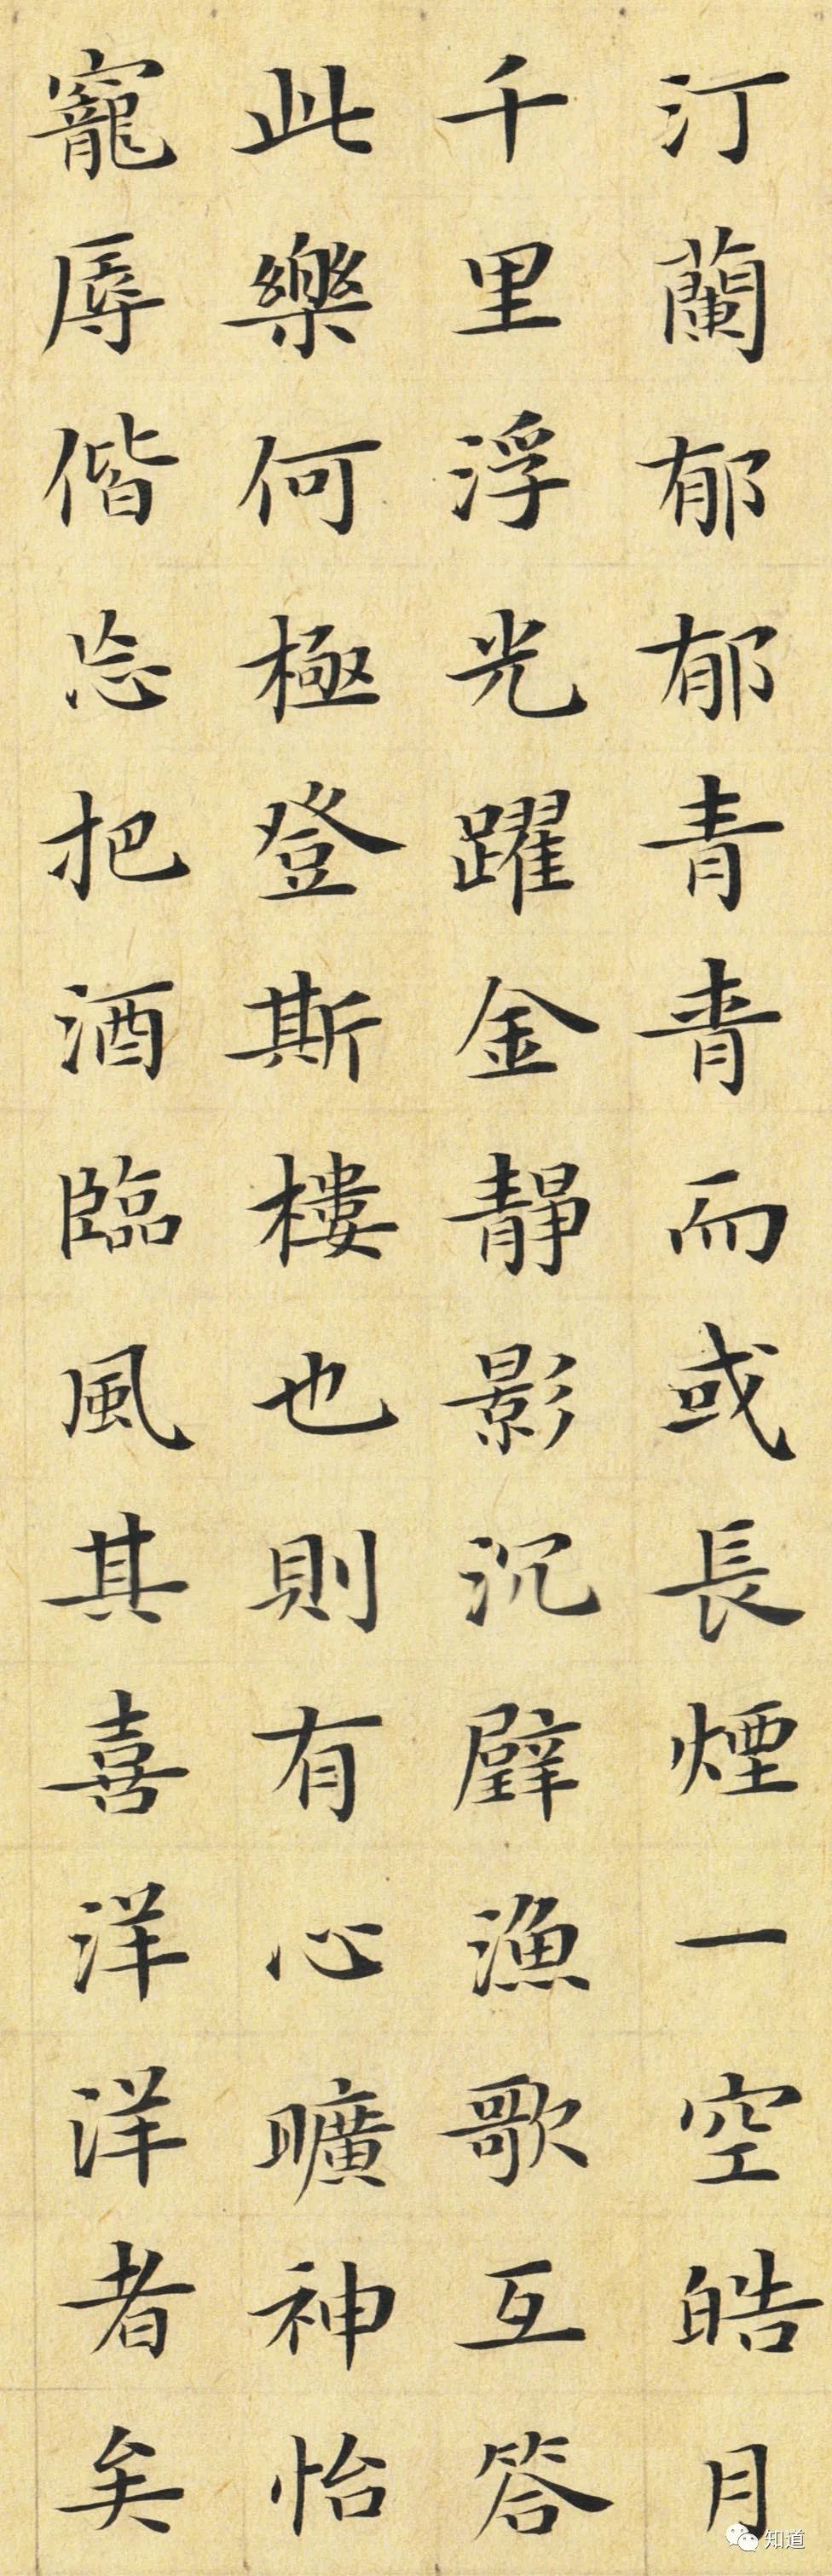 汀蘭郁郁青青而或長煙一空皓月
千里浮光躍金靜影沉璧漁歌互答
此樂何極登斯樓也則有心曠神怡
寵辱偕忘把酒臨風其喜洋洋者矣
知道